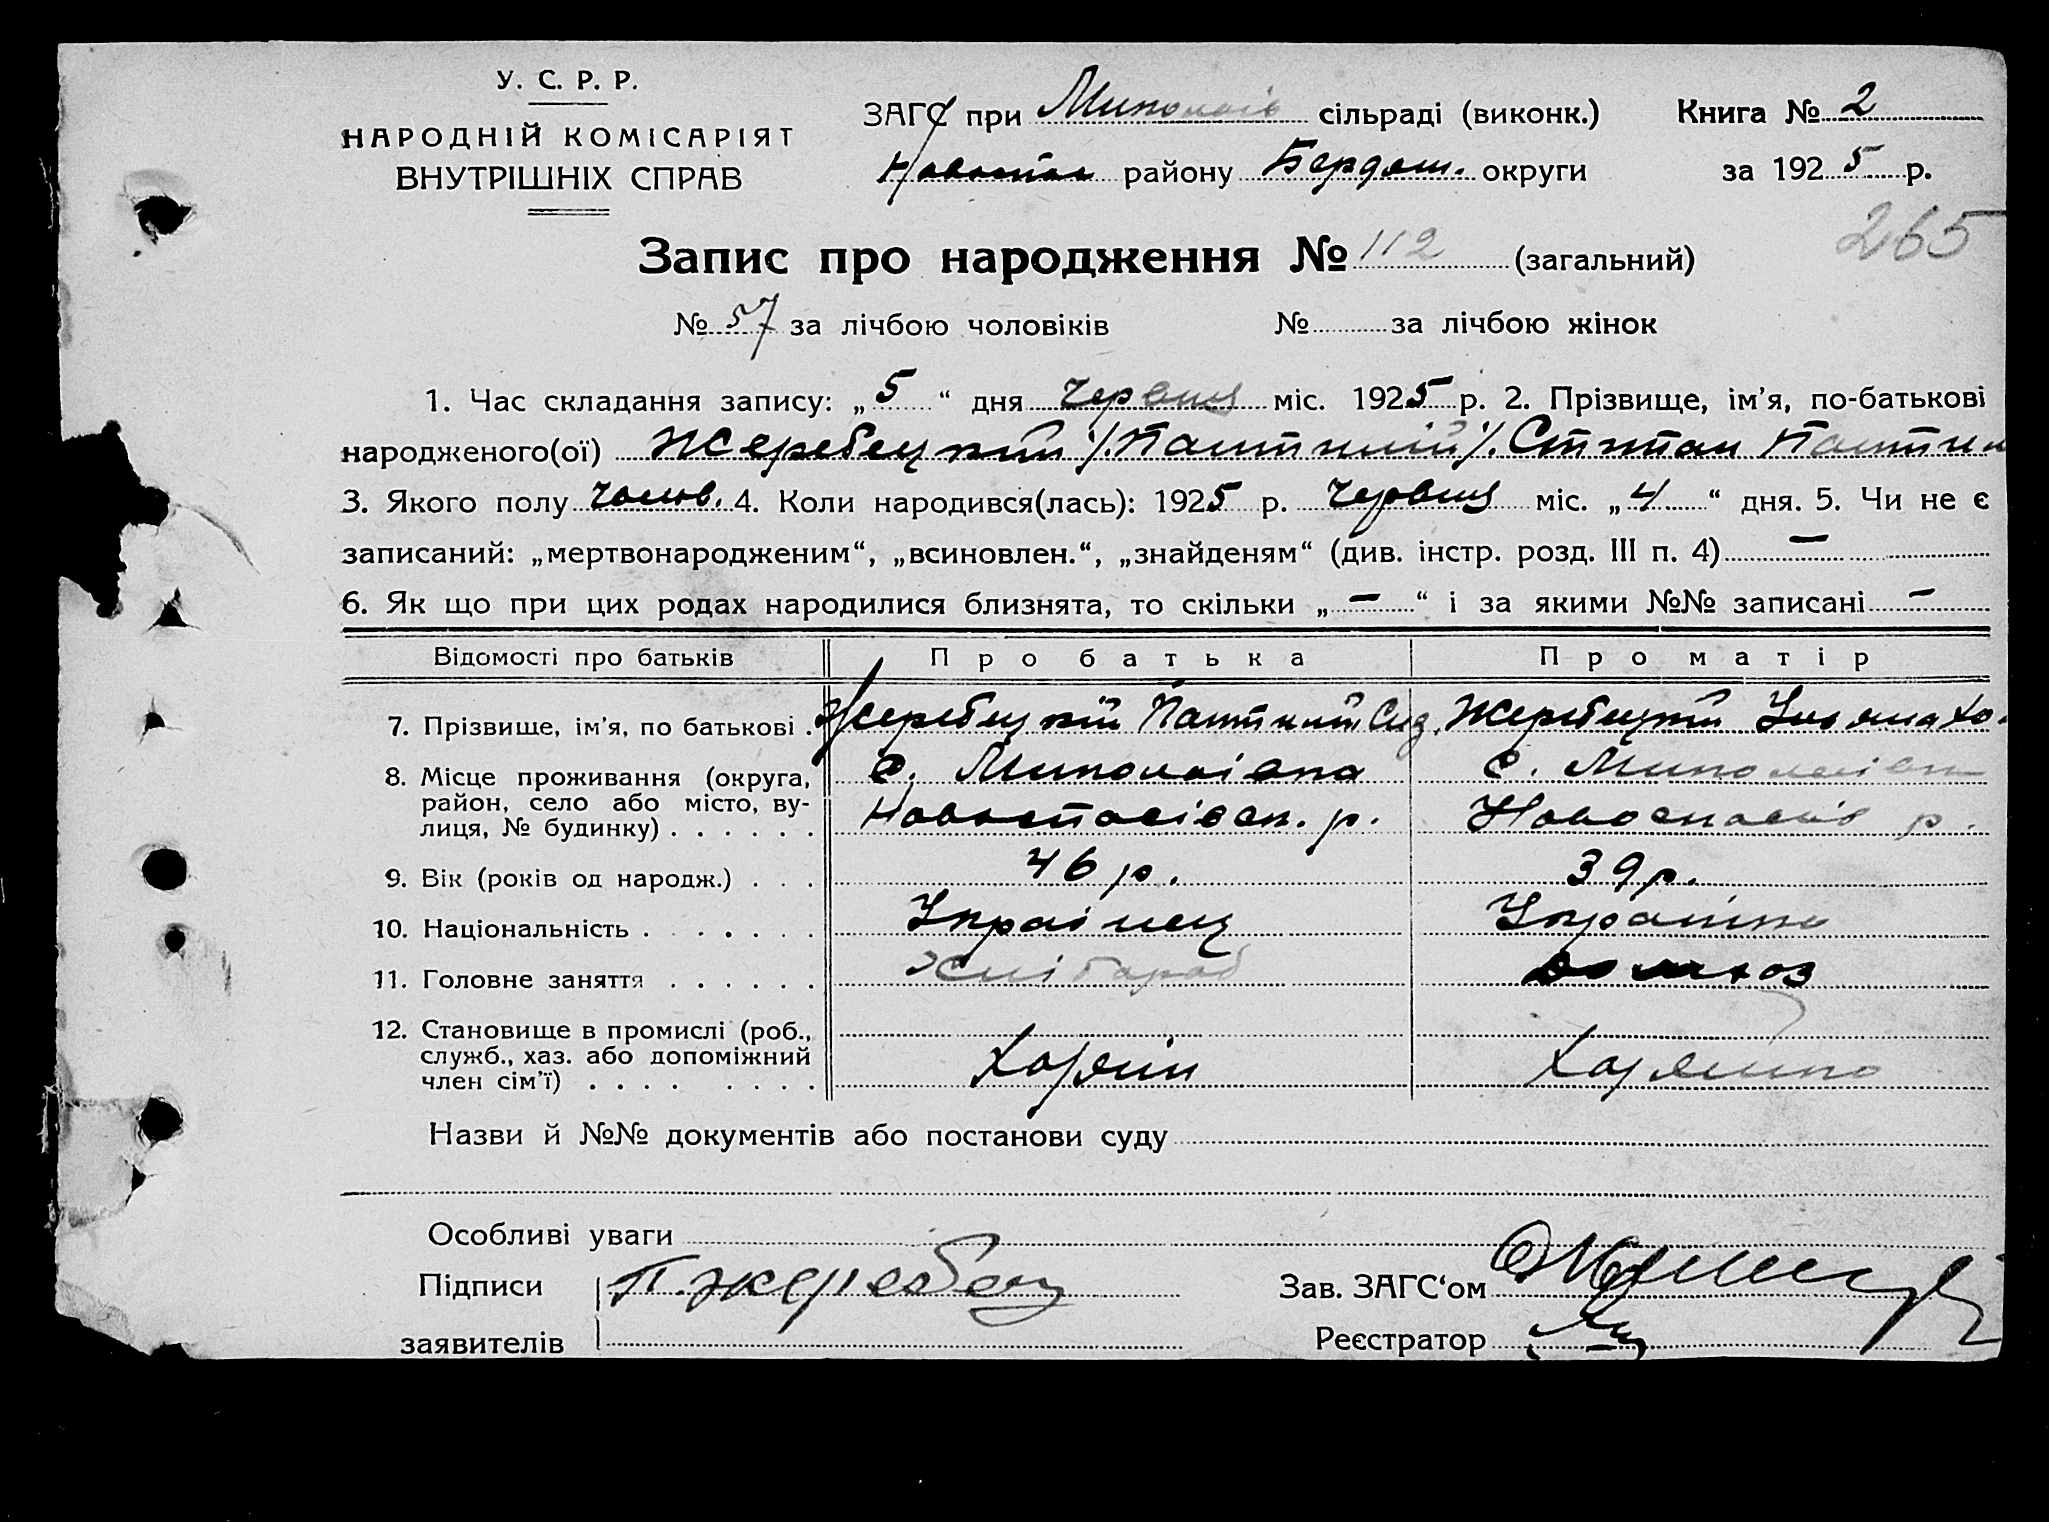 У. С. Р. Р.
НАРОДНІЙ КОМІСАРІЯТ
ВНУТРІШНІХ СПРАВ
ЗАГС при Миколаїв сільраді (виконк.) Книга № 2
Новоспас району Бердян. округи за 1925 р.
265
Запис про народження № 112 (загальний)
№ 57 за лічбою чоловіків № за лічбою жінок
1. Час складання запису: „5“ дня Червня міс. 1925 р. 2. Прізвище, ім'я, по-батькові
народженого(ої) Жеребецкий Степан
3. Якого полу Чолов. 4. Коли народився(лась): 1925 р. Червня міс. „4“ дня. 5. Чи не є
записаний: „мертвонародженим“, „всиновлен.“, „знайденям“ (див. інстр. розд. III п. 4) —
6. Як що при цих родах народилися близнята, то скільки „—“ і за якими №№ записані —
Відомості про батьків Про батька Про матір
7. Прізвище, ім'я, по батькові . Жеребецкий Жеребецкий Уляна
8. Місце проживання (округа, с. Миколаівка с. Миколаівк
район, село або місто, ву-
лиця, № будинку) . . . . . . Новоспасівск. р. Новоспасів р.
9. Вік (років од народж.) . . . 46 р. 39 р.
10. Національність . . . . . . . Украінец Украінка
11. Головне заняття . . . . . . Хлібороб домхоз
12. Становище в промислі (роб.,
служб., хаз. або допоміжний Хазяін Хазяйка
член сім'ї) . . . . . . . .
Назви й №№ документів або постанови суду
Особливі уваги
Підписи П. Жеребец Зав. ЗАГС'ом
заявителів Реєстратор